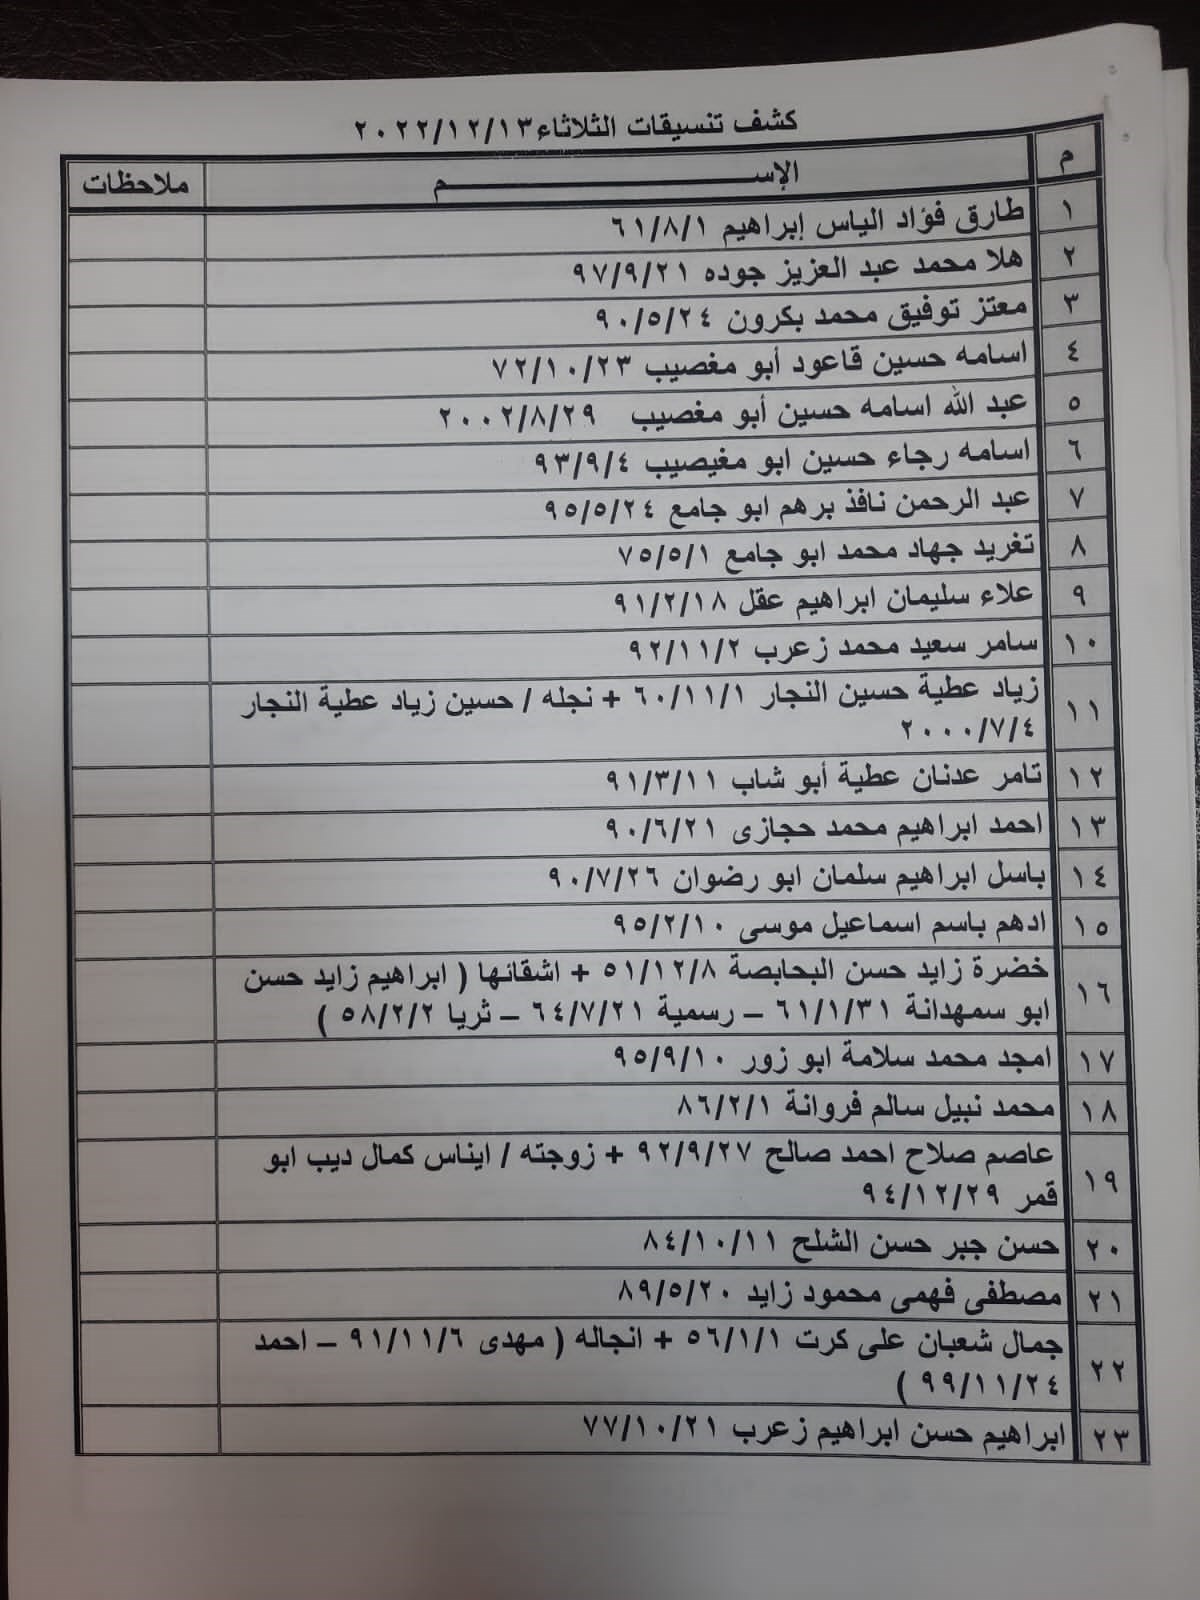 كشف تنسيقات الثلاثاء ٢٠٢٢/١٢/١٣
م الإســـــــــــم ملاحظات
١ طارق فؤاد الياس إبراهيم ٦١/٨/١
٢ هلا محمد عبد العزيز جوده ٩٧/٩/٢١
٣ معتز توفيق محمد بكرون ٩٠/٥/٢٤
٤ اسامه حسين قاعود أبو مغصيب ٧٢/١٠/٢٣
٥ عبد الله اسامه حسين أبو مغصيب ٢٠٠٢/٨/٢٩
٦ اسامه رجاء حسين ابو مغيصيب ٩٣/٩/٤
٧ عبد الرحمن نافذ برهم ابو جامع ٩٥/٥/٢٤
٨ تغريد جهاد محمد ابو جامع ٧٥/٥/١
٩ علاء سليمان ابراهيم عقل ٩١/٢/١٨
١٠ سامر سعيد محمد زعرب ٩٢/١١/٢
١١ زياد عطية حسين النجار ٦٠/١١/١ + نجله / حسين زياد عطية النجار
٢٠٠٠/٧/٤
١٢ تامر عدنان عطية أبو شاب ٩١/٣/١١
١٣ احمد ابراهيم محمد حجازى ٩٠/٦/٢١
١٤ باسل ابراهيم سلمان ابو رضوان ٩٠/٧/٢٦
١٥ ادهم باسم اسماعيل موسى ٩٥/٢/١٠
١٦ خضرة زايد حسن البحابصة ٥١/١٢/٨ + اشقائها ( ابراهيم زايد حسن
ابو سمهدانة ٦١/١/٣١ – رسمية ٦٤/٧/٢١ – ثريا ٥٨/٢/٢ )
١٧ امجد محمد سلامة ابو زور ٩٥/٩/١٠
١٨ محمد نبيل سالم فروانة ٨٦/٢/١
١٩ عاصم صلاح احمد صالح ٩٢/٩/٢٧ + زوجته / ايناس كمال ديب ابو
قمر ٩٤/١٢/٢٩
٢٠ حسن جبر حسن الشلح ٨٤/١٠/١١
٢١ مصطفى فهمى محمود زايد ٨٩/٥/٢٠
٢٢ جمال شعبان على كرت ٥٦/١/١ + انجاله ( مهدى ٩١/١١/٦ – احمد
٩٩/١١/٢٤ )
٢٣ ابراهيم حسن ابراهيم زعرب ٧٧/١٠/٢١